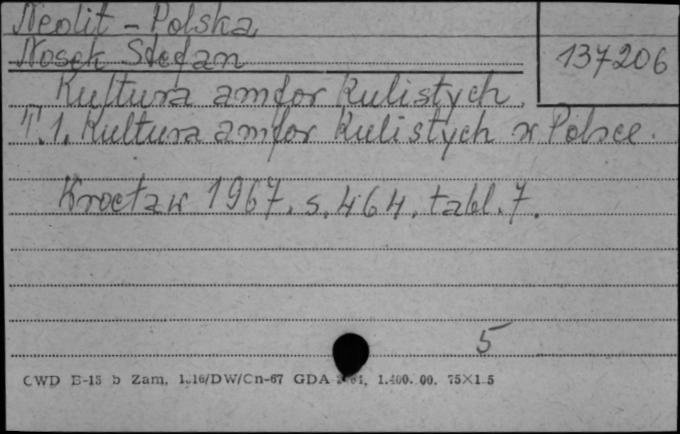 Neolit - Polska
Nosek Stefan
137206
Kultura amfor kulistych.
T.1. Kultura amfor kulistych w Polsce.
Wrocław 1967. s. 464, tabl. 7.
5
CWD E-15 b Zam. /DW/Cn-67 GDA